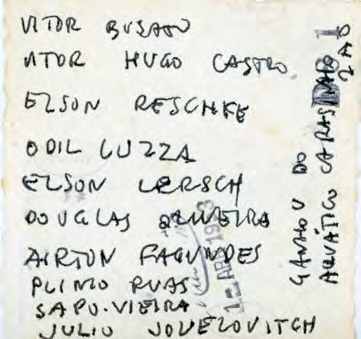 VITOR BUSATO
VITOR HUGO CASTRO
ELSON RESCHKE
ODIL LUZZA
ELSON LERSCH
DOUGLAS OLIVEIRA
AIRTON FAGUNDES
PLINIO RUAS
SAPO.VIEIRA
JULIO JOVELOVITCH
GANHOU DO
AQUÁTICO
1
2 A 0